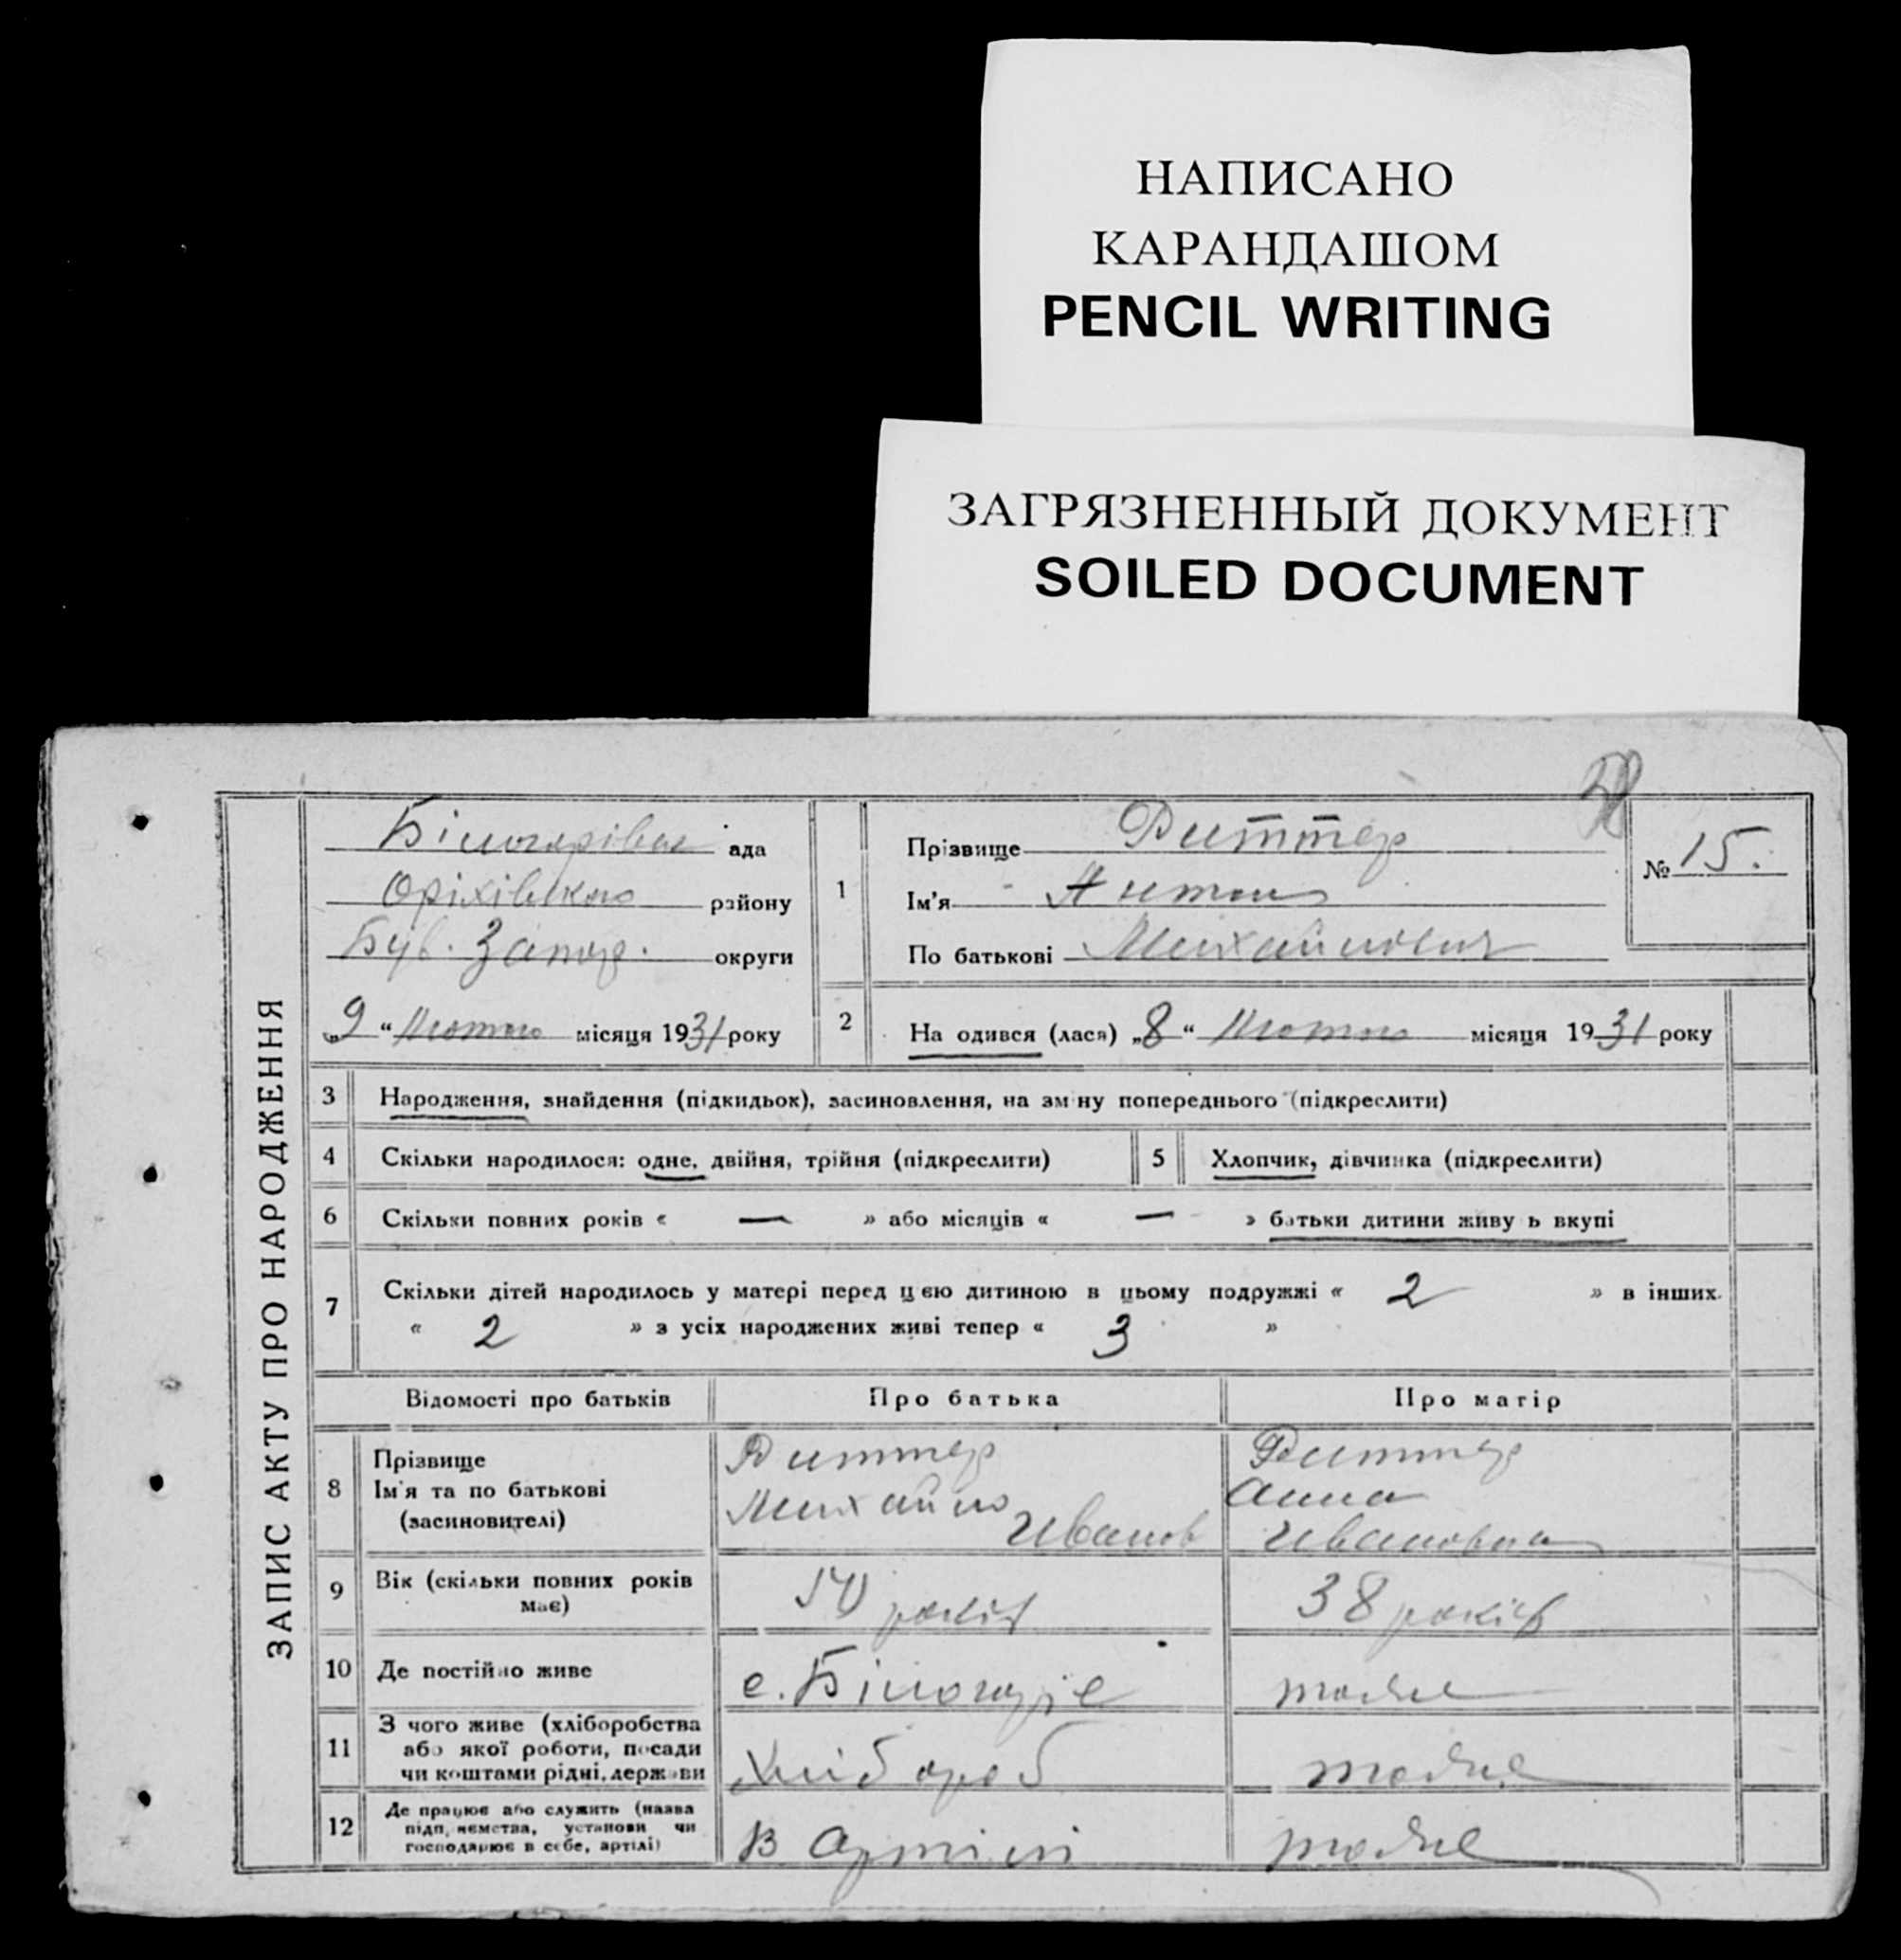 НАПИСАНО
КАРАНДАШОМ
PENCIL WRITING
ЗАГРЯЗНЕННЫЙ ДОКУМЕНТ
SOILED DOCUMENT
ЗАПИС АКТУ ПРО НАРОДЖЕННЯ
ада
Оріхівського району
Був. Запор. округи
„9“ Лютого місяця 1931 року
1
Прізвище Риттер
Ім'я Антон
По батькові Михайлович
№ 15.
2 На одився (лася) „8“ Лютого місяця 1931 року
3 Народження, знайдення (підкидьок), засиновлення, на зм ну попереднього (підкреслити)
4 Скільки народилося: одне, двійня, трійня (підкреслити) 5 Хлопчик, дівчинка (підкреслити)
6 Скільки повних років « — » або місяців « — » батьки дитини живу ь вкупі
7 Скільки дітей народилось у матері перед цією дитиною в цьому подружжі « 2 » в інших
« 2 » з усіх народжених живі тепер « 3 »
Відомості про батьків Про батька Про матір
8 Прізвище
Ім'я та по батькові
(засиновителі)
Риттер
Михайло
Иванов
Риттер
Анна
Ивановна
9 Вік (скільки повних років
має)
років
38 років
10 Де постійно живе с. Білогорје тоже
11 З чого живе (хліборобства
або якої роботи, посади
чи коштами рідні, держави
Хлібороб тоже
12 Де працює або служить (назва
підп, иємства, установи чи
господарює в себе, артілі)
В Артілі тоже